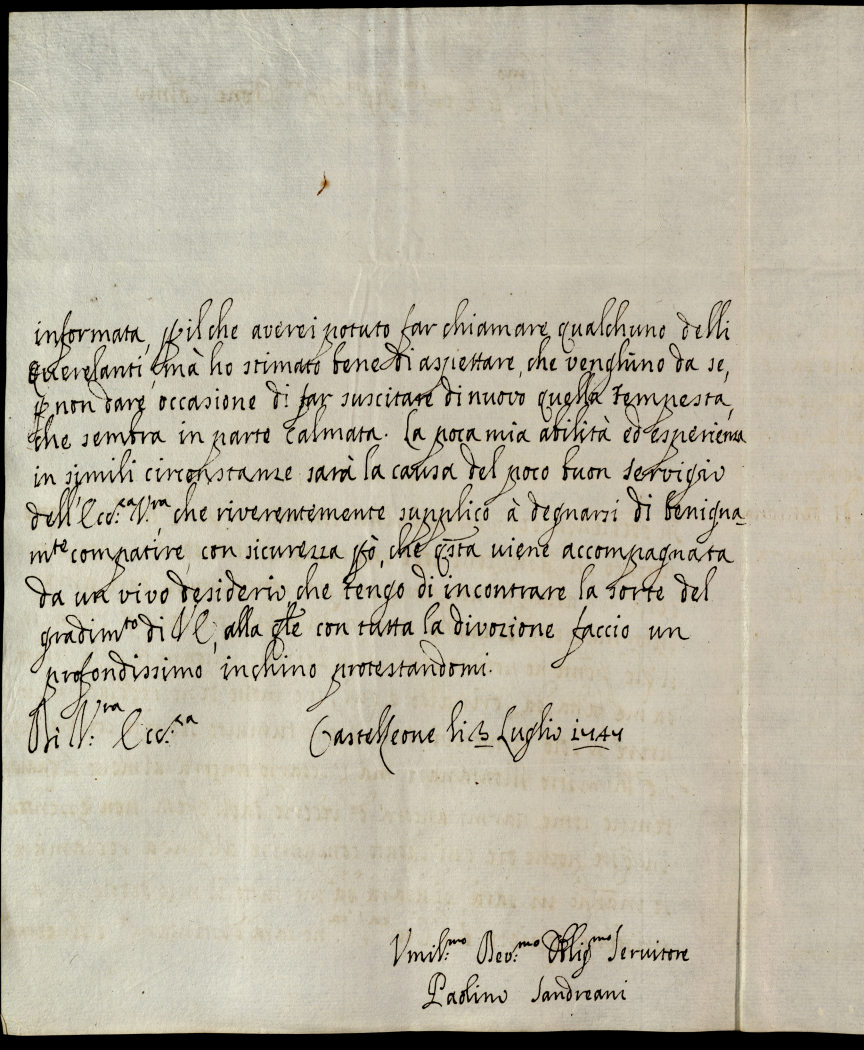 informata, p̱ il che averei potuto far chiamare qualchuno delli
Querelanti, mà ho stimato bene di aspettare, che venghino da se,
p̱ non dare occasione di far suscitare di nuovo quella Tempesta,
che sembra in parte Calmata. La poca mia abilità ed esperienza
in simili circonstanze sarà la causa del poco buon Servigio
dell'Ecc.za V.ra, che riverentemente supplico à degnarsi di benigna-
mte compatire, con sicurezza p̱ò, che q̃sta viene accompagnata
da un vivo desiderio, che tengo di incontrare la sorte del
gradimto di VE, alla q̃le con tutta la divozione faccio un
profondissimo inchino protestandomi.
Di V.ra Ecc.za Castelleone li 3 Luglio 1747
Vmil.mo Dev.mo Obligmo Servitore
Paolino Sandreani